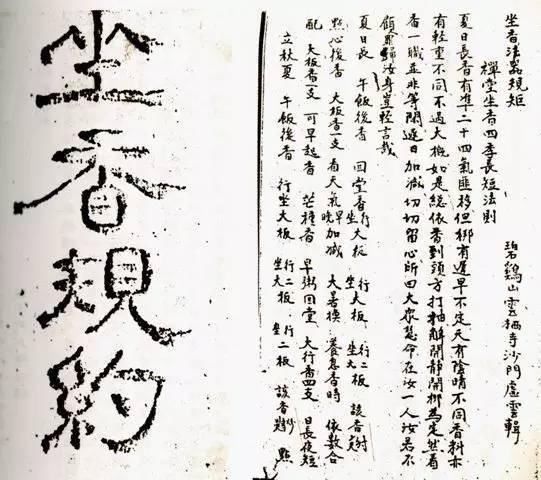 坐香規約
坐香法器規矩 碧鷄山雲栖寺沙門虛雲輯
禪堂坐香四季長短法則
夏日長香有準二十四氣匪移但綁有遲早不定天有陰晴不同香料亦
有輕重不同不過大概如是總依香到頭方打抽解開靜開梆為定然看
香一職並非等閒遲日加減切切留心所曰大眾慧命在汝一人汝若不
顧罪歸汝身豈輕言哉
夏日長 午飯後香 回堂香行坐大板 行大板 坐大 行二板 坐二板 該香
點心後香 大板香一支 看天氣早晚加減 大善換 養息香時 依數合
配 大板香一支 可早起香 芒種香 早粥回堂 大行香四支 日長夜短
立秋夏 午飯後香 行坐大板 行二板 坐大 行坐二板 該香 點